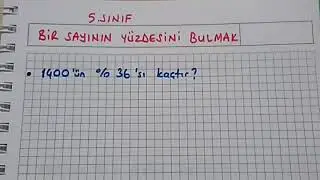 5.SINIF
BİR SAYININ YÜZDESİNİ BULMAK
• 1400'ün % 36'sı kaçtır?